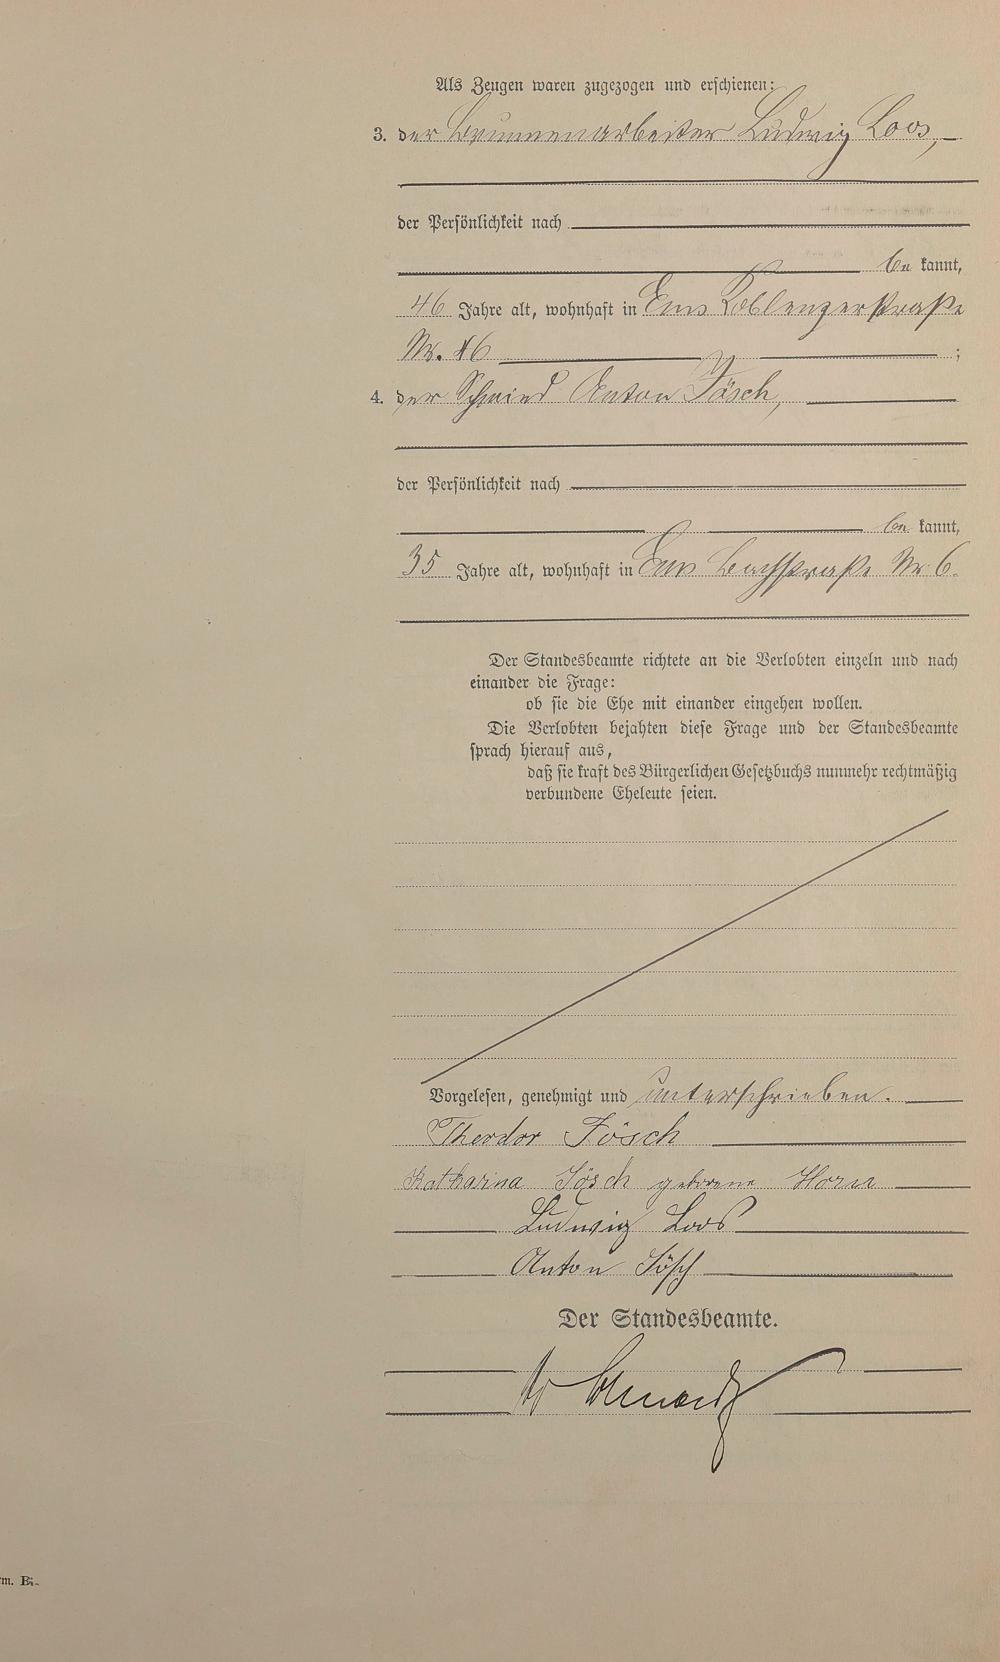 Als Zeugen waren zugezogen und erschienen:
3. der Brunnenarbeiter Ludwig Loos,
der Persönlichkeit nach
be kannt,
46 Jahre alt, wohnhaft in Ems Koblenzerstraße
Nr. 46 ;
4. der Schmied Anton Jösch,
der Persönlichkeit nach
be kannt,
35 Jahre alt, wohnhaft in Ems Bachstraße Nr. 6.
Der Standesbeamte richtete an die Verlobten einzeln und nach
einander die Frage:
ob sie die Ehe mit einander eingehen wollen.
Die Verlobten bejahten diese Frage und der Standesbeamte
sprach hierauf aus,
daß sie kraft des Bürgerlichen Gesetzbuchs nunmehr rechtmäßig
verbundene Eheleute seien.
Vorgelesen, genehmigt und unterschrieben.
Theodor Jösch
Katharina Jösch geborene Horn
Ludwig Loos
Anton Jösch
Der Standesbeamte.